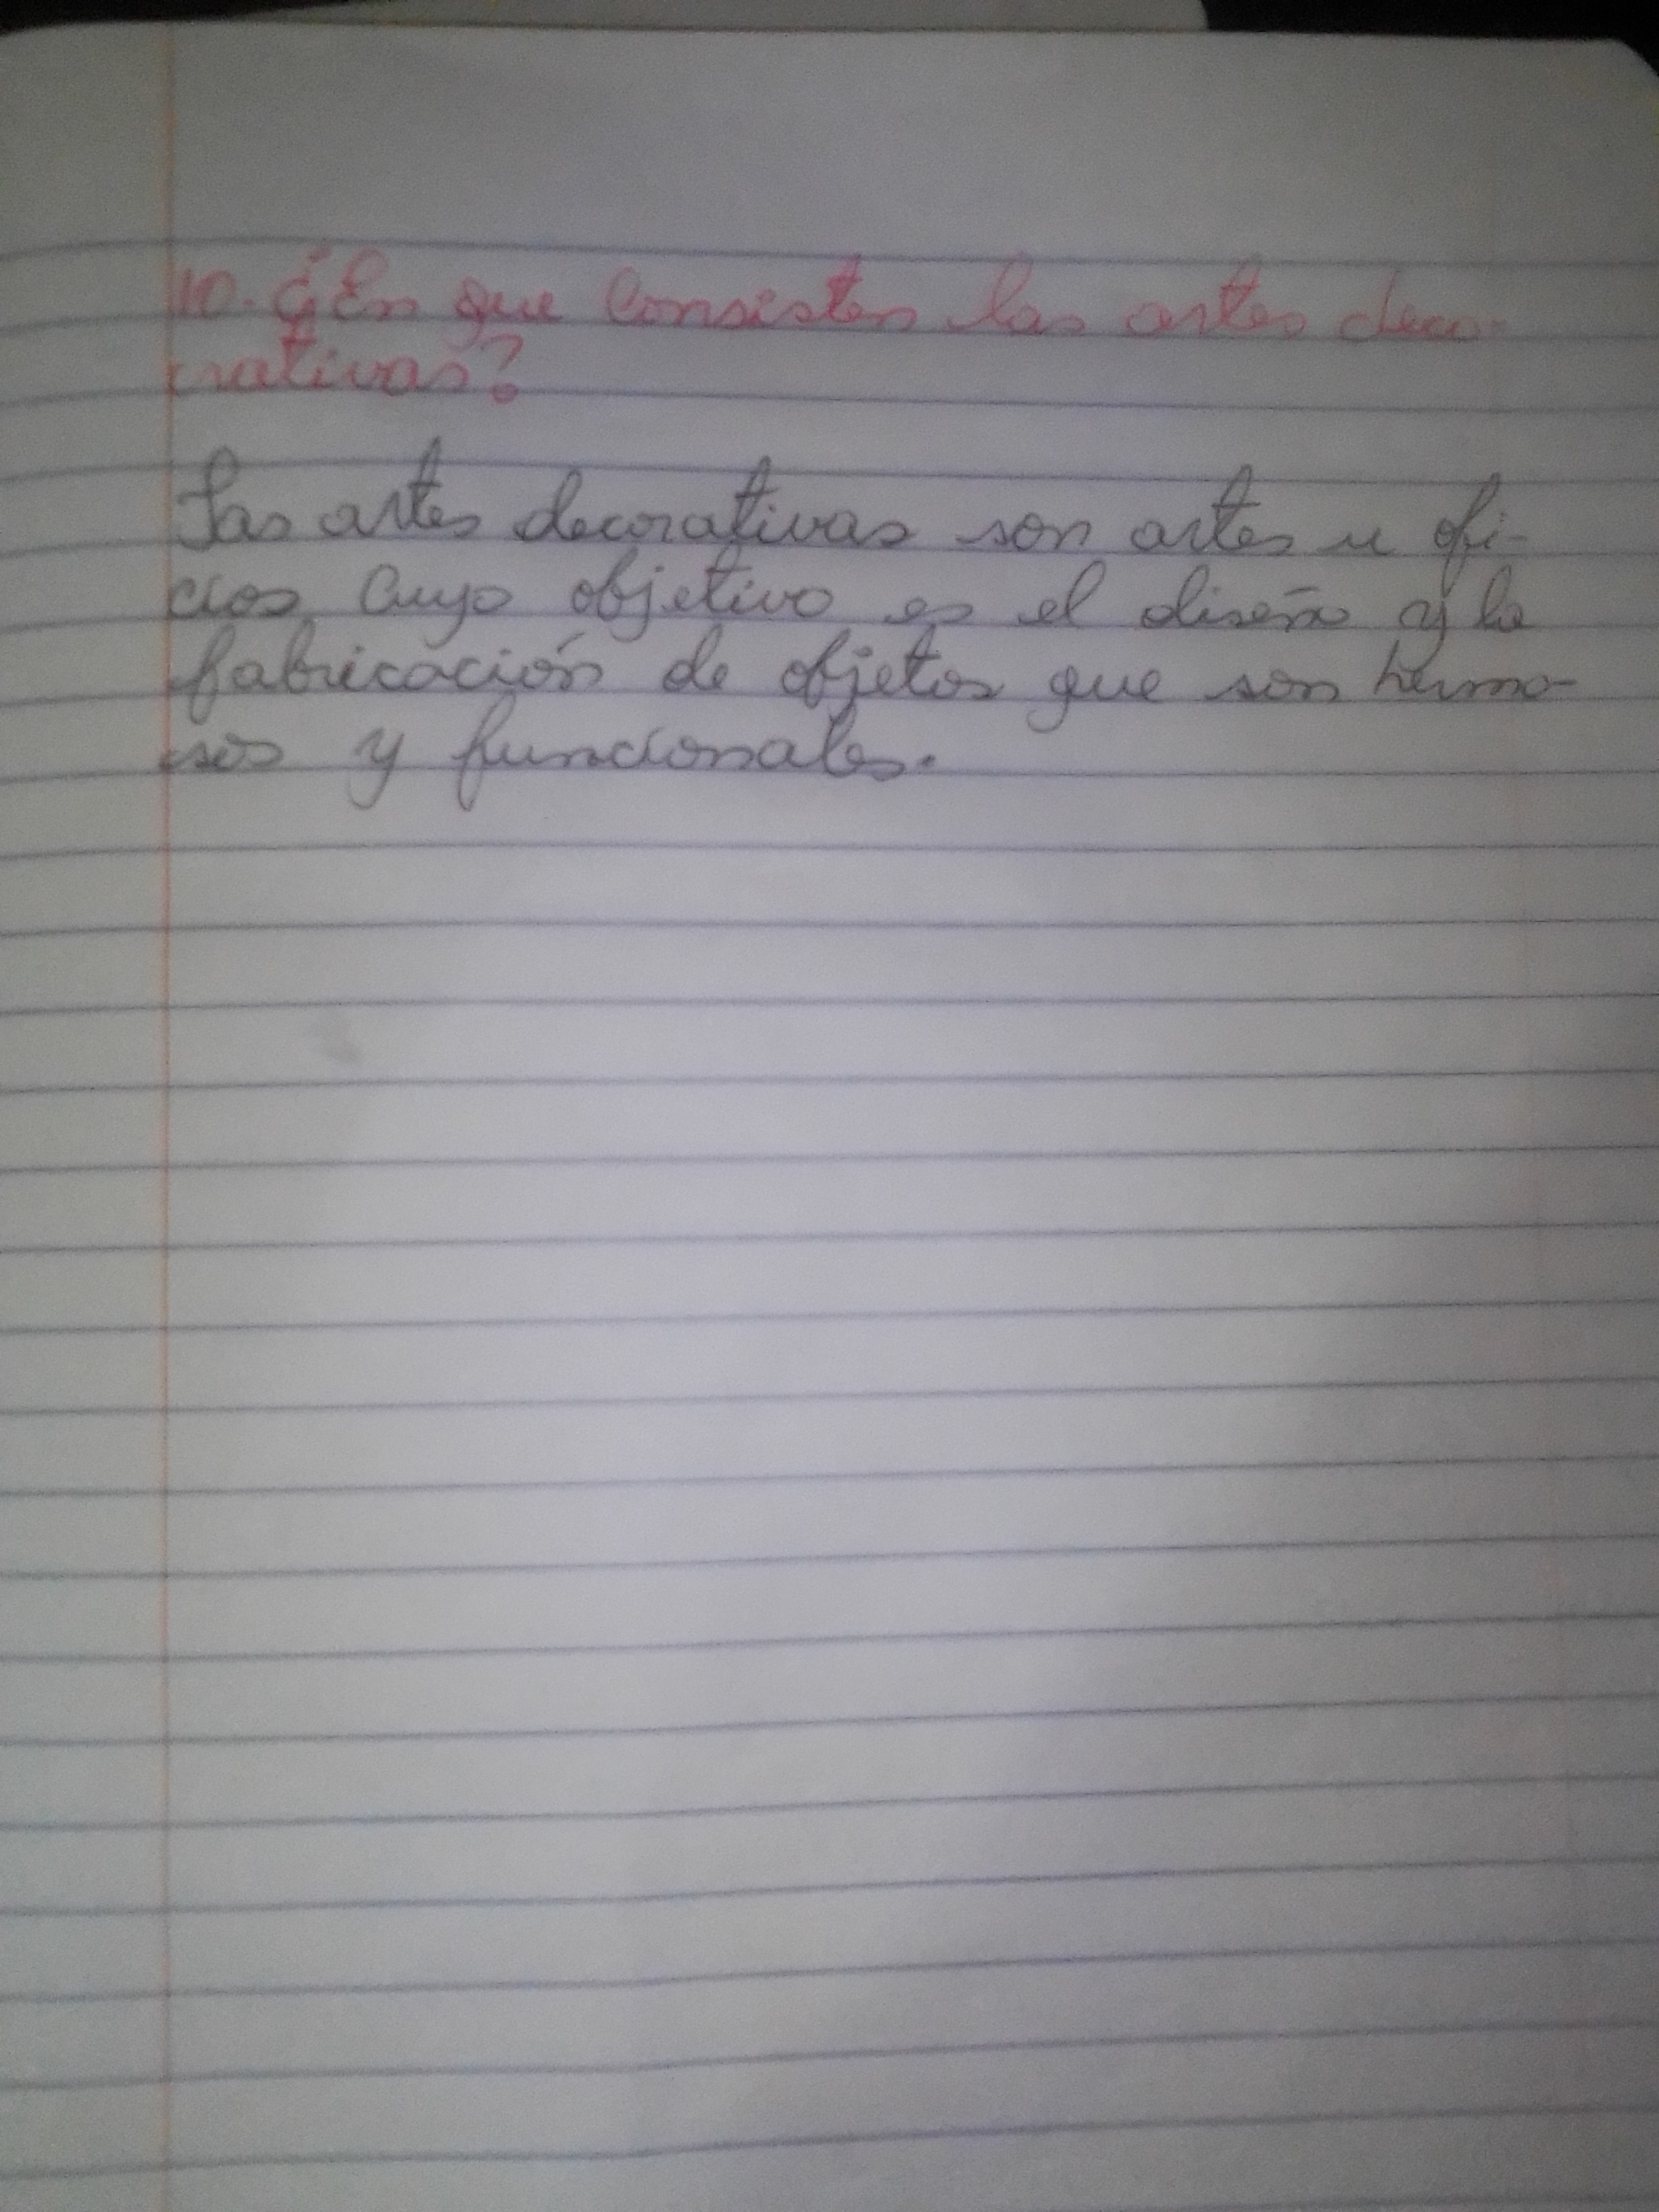 10. ¿En que consisten las artes deco-
rativas?
Las artes decorativas son artes u ofi-
cios cuyo objetivo es el diseño y la
fabricación de objetos que son hermo-
sos y funcionales.